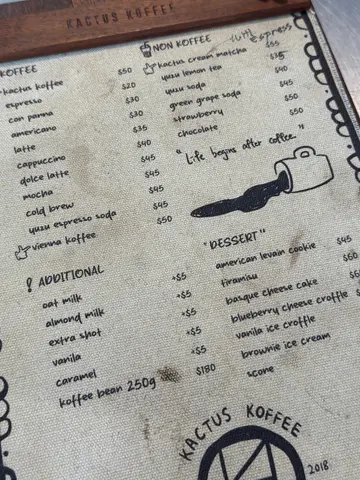 KACTUS KOFFEE
KOFFEE
kactus koffee $50
espresso $20
con panna $30
americano $30
latte $35
cappuccino $40
dolce latte $45
mocha $45
cold brew $45
yuzu espresso soda $45
vienna koffee $50
NON KOFFEE
espresso
kactus cream matcha $55
yuzu lemon tea
yuzu soda $40
green grape soda $45
strawberry $50
chocolate $50
"Life begins after coffee."
ADDITIONAL
oat milk +$5
almond milk +$5
extra shot +$5
vanilla +$5
caramel +$5
koffee bean 250g $180
"DESSERT"
american levain cookie $45
tiramisu
basque cheese cake
blueberry cheese croffle
vanilla ice croffle
brownie ice cream
scone
KACTUS KOFFEE
2018